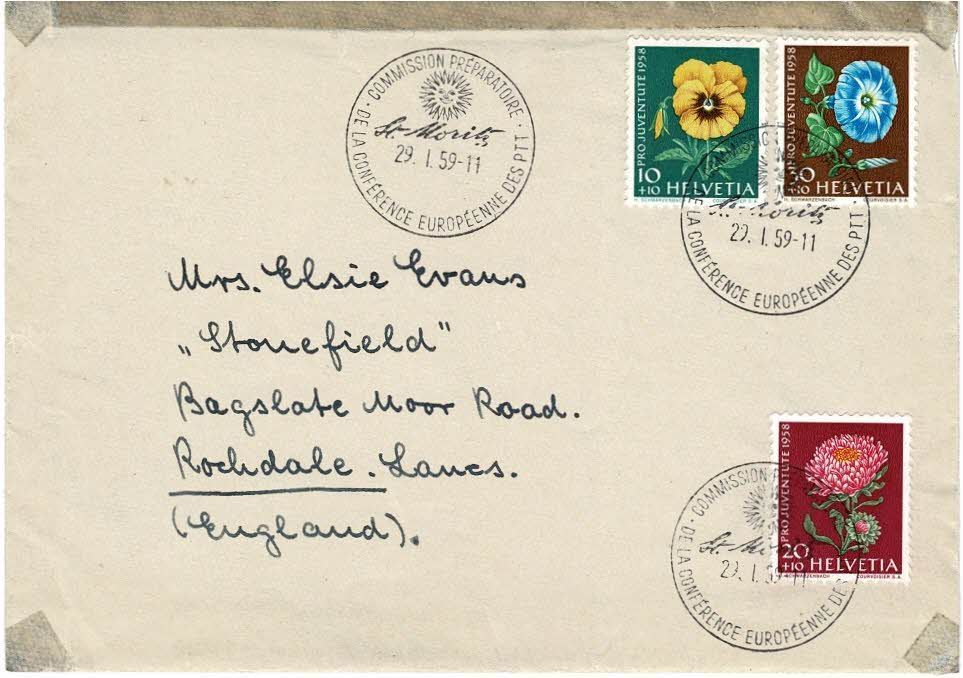 · COMMISSION PRÉPARATOIRE ·
DE LA CONFÉRENCE EUROPÉENNE DES PTT
St. Moritz
29. I. 59-11
PRO JUVENTUTE 1958
10
+10 HELVETIA
H. SCHWARZENBACH COURVOISIER S.A.
PRO JUVENTUTE 1958
HELVETIA
H. SCHWARZENBACH COURVOISIER S.A.
DE LA CONFÉRENCE EUROPÉENNE DES PTT ·
St. Moritz
29. I. 59-11
Mrs. Elsie Evans
„Stonefield"
Bagslate Moor Road.
Rochdale. Lancs.
(England).
PRO JUVENTUTE 1958
20
+10 HELVETIA
H. SCHWARZENBACH COURVOISIER S.A.
· COMMISSION
DE LA CONFÉRENCE EUROPÉENNE DES
St. Mo
29. I. 59-11